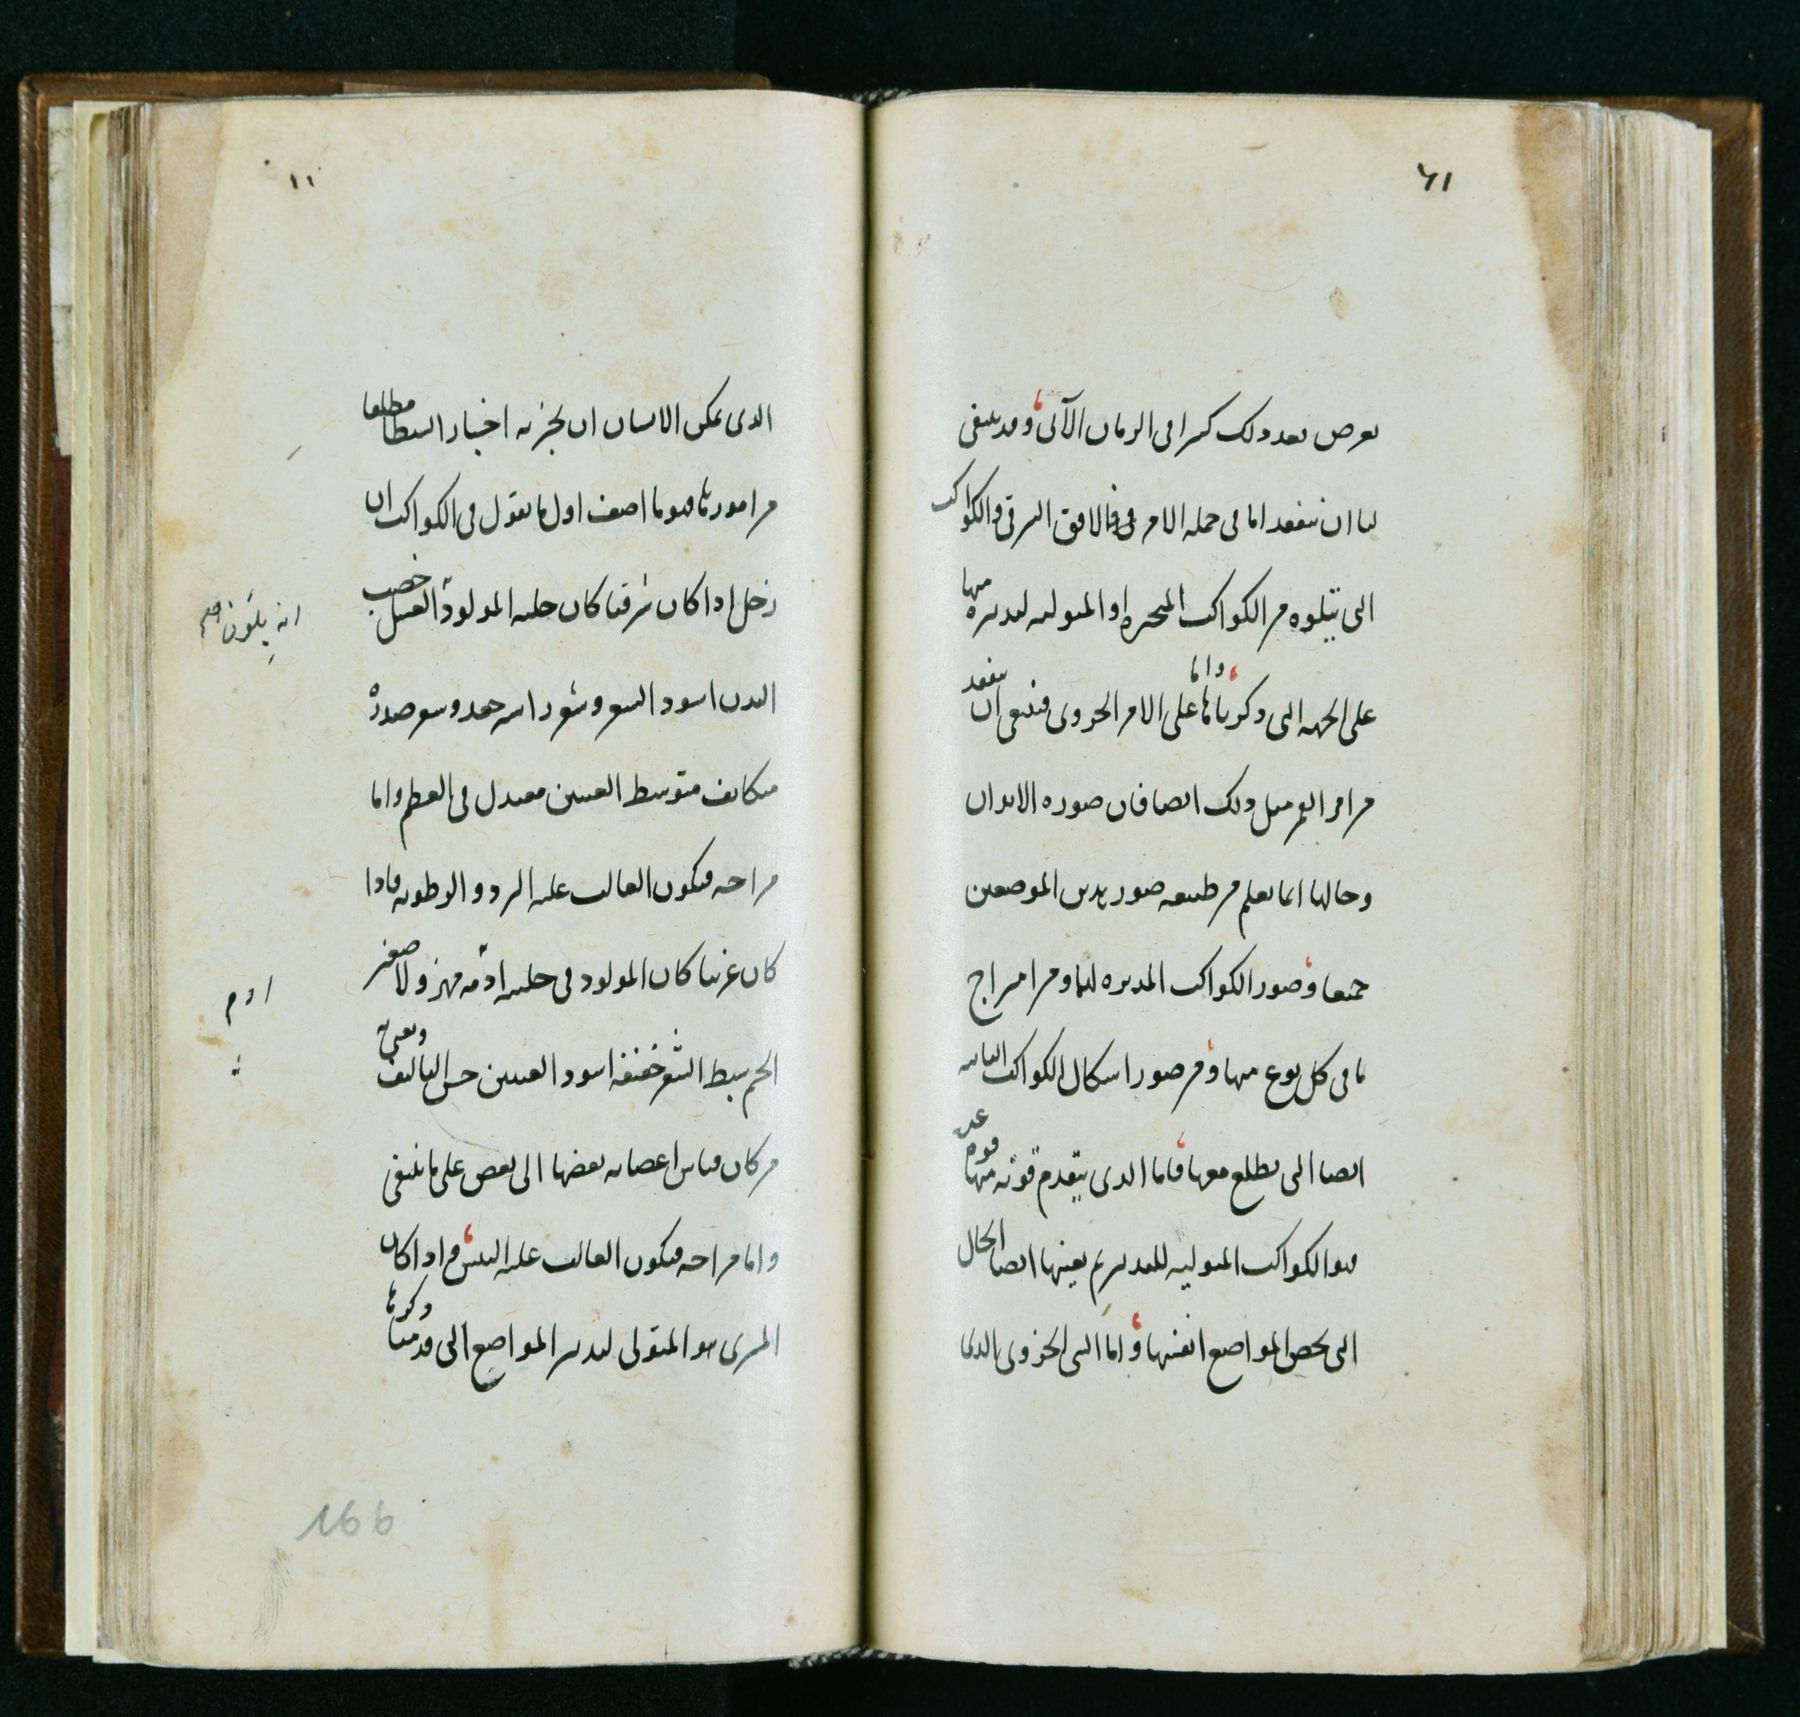 ٦١
يعرض بعد ذلك كثيرا في الزمان الآتي وقد ينبغي
لنا ان نتفقد اما في جملة الامر في الافق الشرقي والكواكب
التي تتلوه من الكواكب المتحيرة او المتولية لتدبيره منها
على الجهة التي ذكرناها واما على الامر الجزوي فينبغي ان نتفقد
من امر القمر مثل ذلك ايضا فان صورة الابدان
وحالها انما يعلم من طبيعة صور هذين الموضعين
جميعا وصور الكواكب المدبرة لهما ومن امتزاج
ما في كل نوع منها ومن صور اشكال الكواكب الثابتة
ايضا التي تطلع معها فاما الذي يتقدم قوته منها قوة
عن
فهو الكواكب المتولية للتدبير ثم يعينها ايضا الحال
التي تخص المواضع انفسها واما الشي الجزوي الذي
١١
الذي يمكن الانسان ان يخبر به اخبارا بسيطا مطلقا
من امورها فهو ما اصف اول ما نقول في الكواكب ان
زحل اذا كان شرقيا كان حلية المولود العسل خصب
انه يلون صح
البدن اسود الشعر وشعر راسه جعد وشعر صدره
متكاثف متوسط العينين معتدل في العظم واما
مزاجه فيكون الغالب عليه البرد والرطوبة فاذا
كان غربيا كان المولود في حليته ادمة مهزولا صغير
ادم
الجسم سبط الشعر خفيفه اسود العينين حسن التاليف
من كان قياس اعضايه بعضها الى بعض على ما ينبغي
واما مزاجه فيكون الغالب عليه اليبس ومن اذا كان
المشري هو المتولي لتدبير المواضع التي قدمنا ذكرها
166